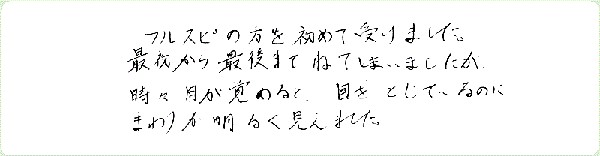 フルスピの方を初めて受けました。
最初から最後までねてしまいましたが、
時々目が覚めると、目をとじているのに
まわりが明るく見えました